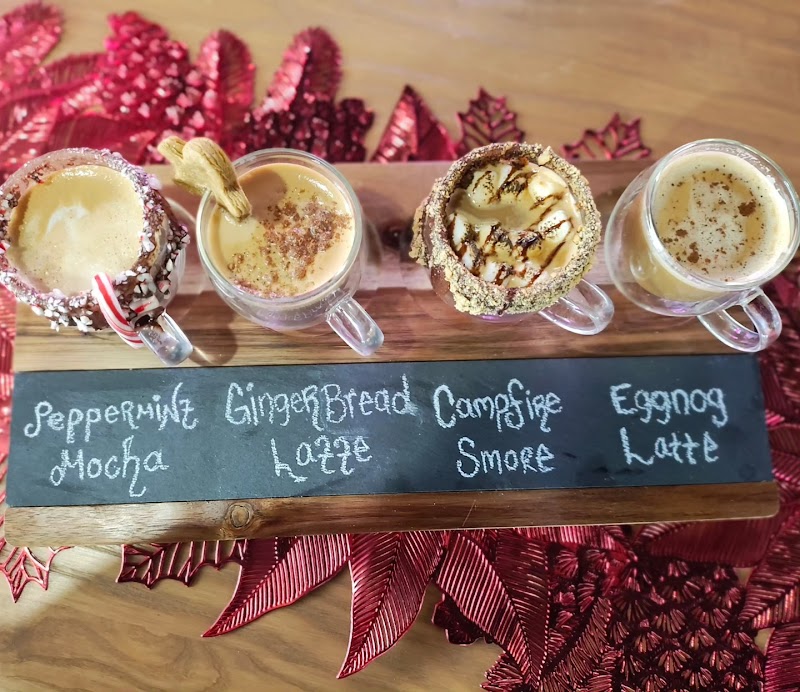 Peppermint
Mocha
GingerBread
Latte
Campfire
Smore
Eggnog
Latte